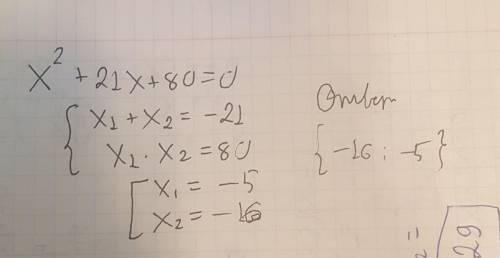 x² + 21x + 80 = 0
{ x₁ + x₂ = -21
x₁ · x₂ = 80
[ x₁ = -5
x₂ = -16
Ответ
{-16 ; -5}
2 =
29